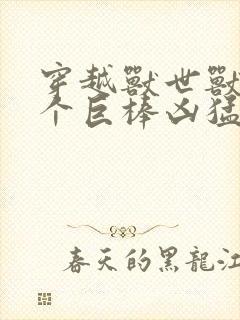 穿越獸世獸
个巨棒凶猛
春天的黑龍江